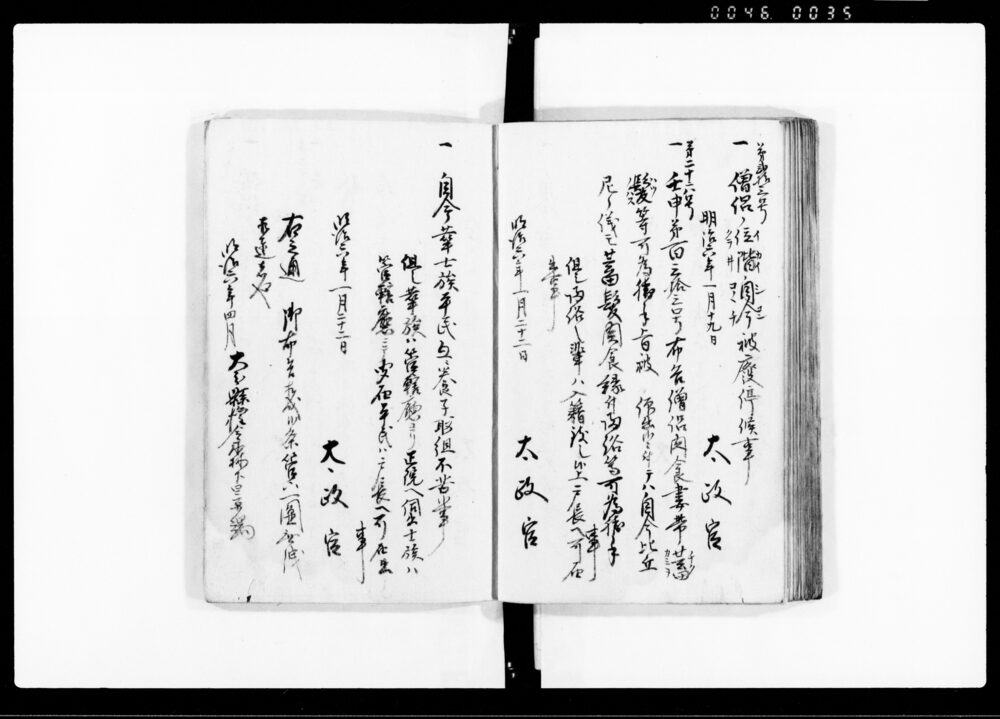 0046 0035
第弐拾三号
一 僧侶位階自今被廃停候事
明治六年一月十九日
太政官
第二十六号
一 壬申第百三拾三号布告僧侶肉食妻帯蓄
髪等可為勝手旨被 仰出候ニ付テハ自今比丘
尼ノ儀モ蓄髪肉食縁付帰俗等可為勝手
事
但シ帰俗ノ輩ハ入籍致シ候上戸長ヘ可届
出事
明治六年一月二十二日
太政官
一 自今華士族平民互ニ養子取組不苦事
但シ華族ハ管轄庁ヨリ正院ヘ伺出士族ハ
管轄庁ニ 平民ハ戸長ヘ可届出
事
明治六年一月二十二日
太政官
右之通 御布告相成候条
者也
明治六年四月